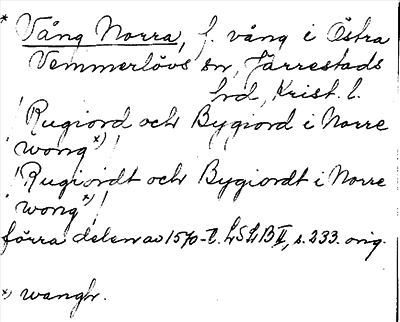 * Vång Norra, f. vång i Östra
Vemmerlövs sn, Järrestads
hd, Krist. l.
'Rugiord och Bygiord i Norre
wong x)'
'Rugiordt och Bygiordt i Norre
wong x)'
förra delen av 1570-t. LSLB II, s. 233. orig.
x) wangh.